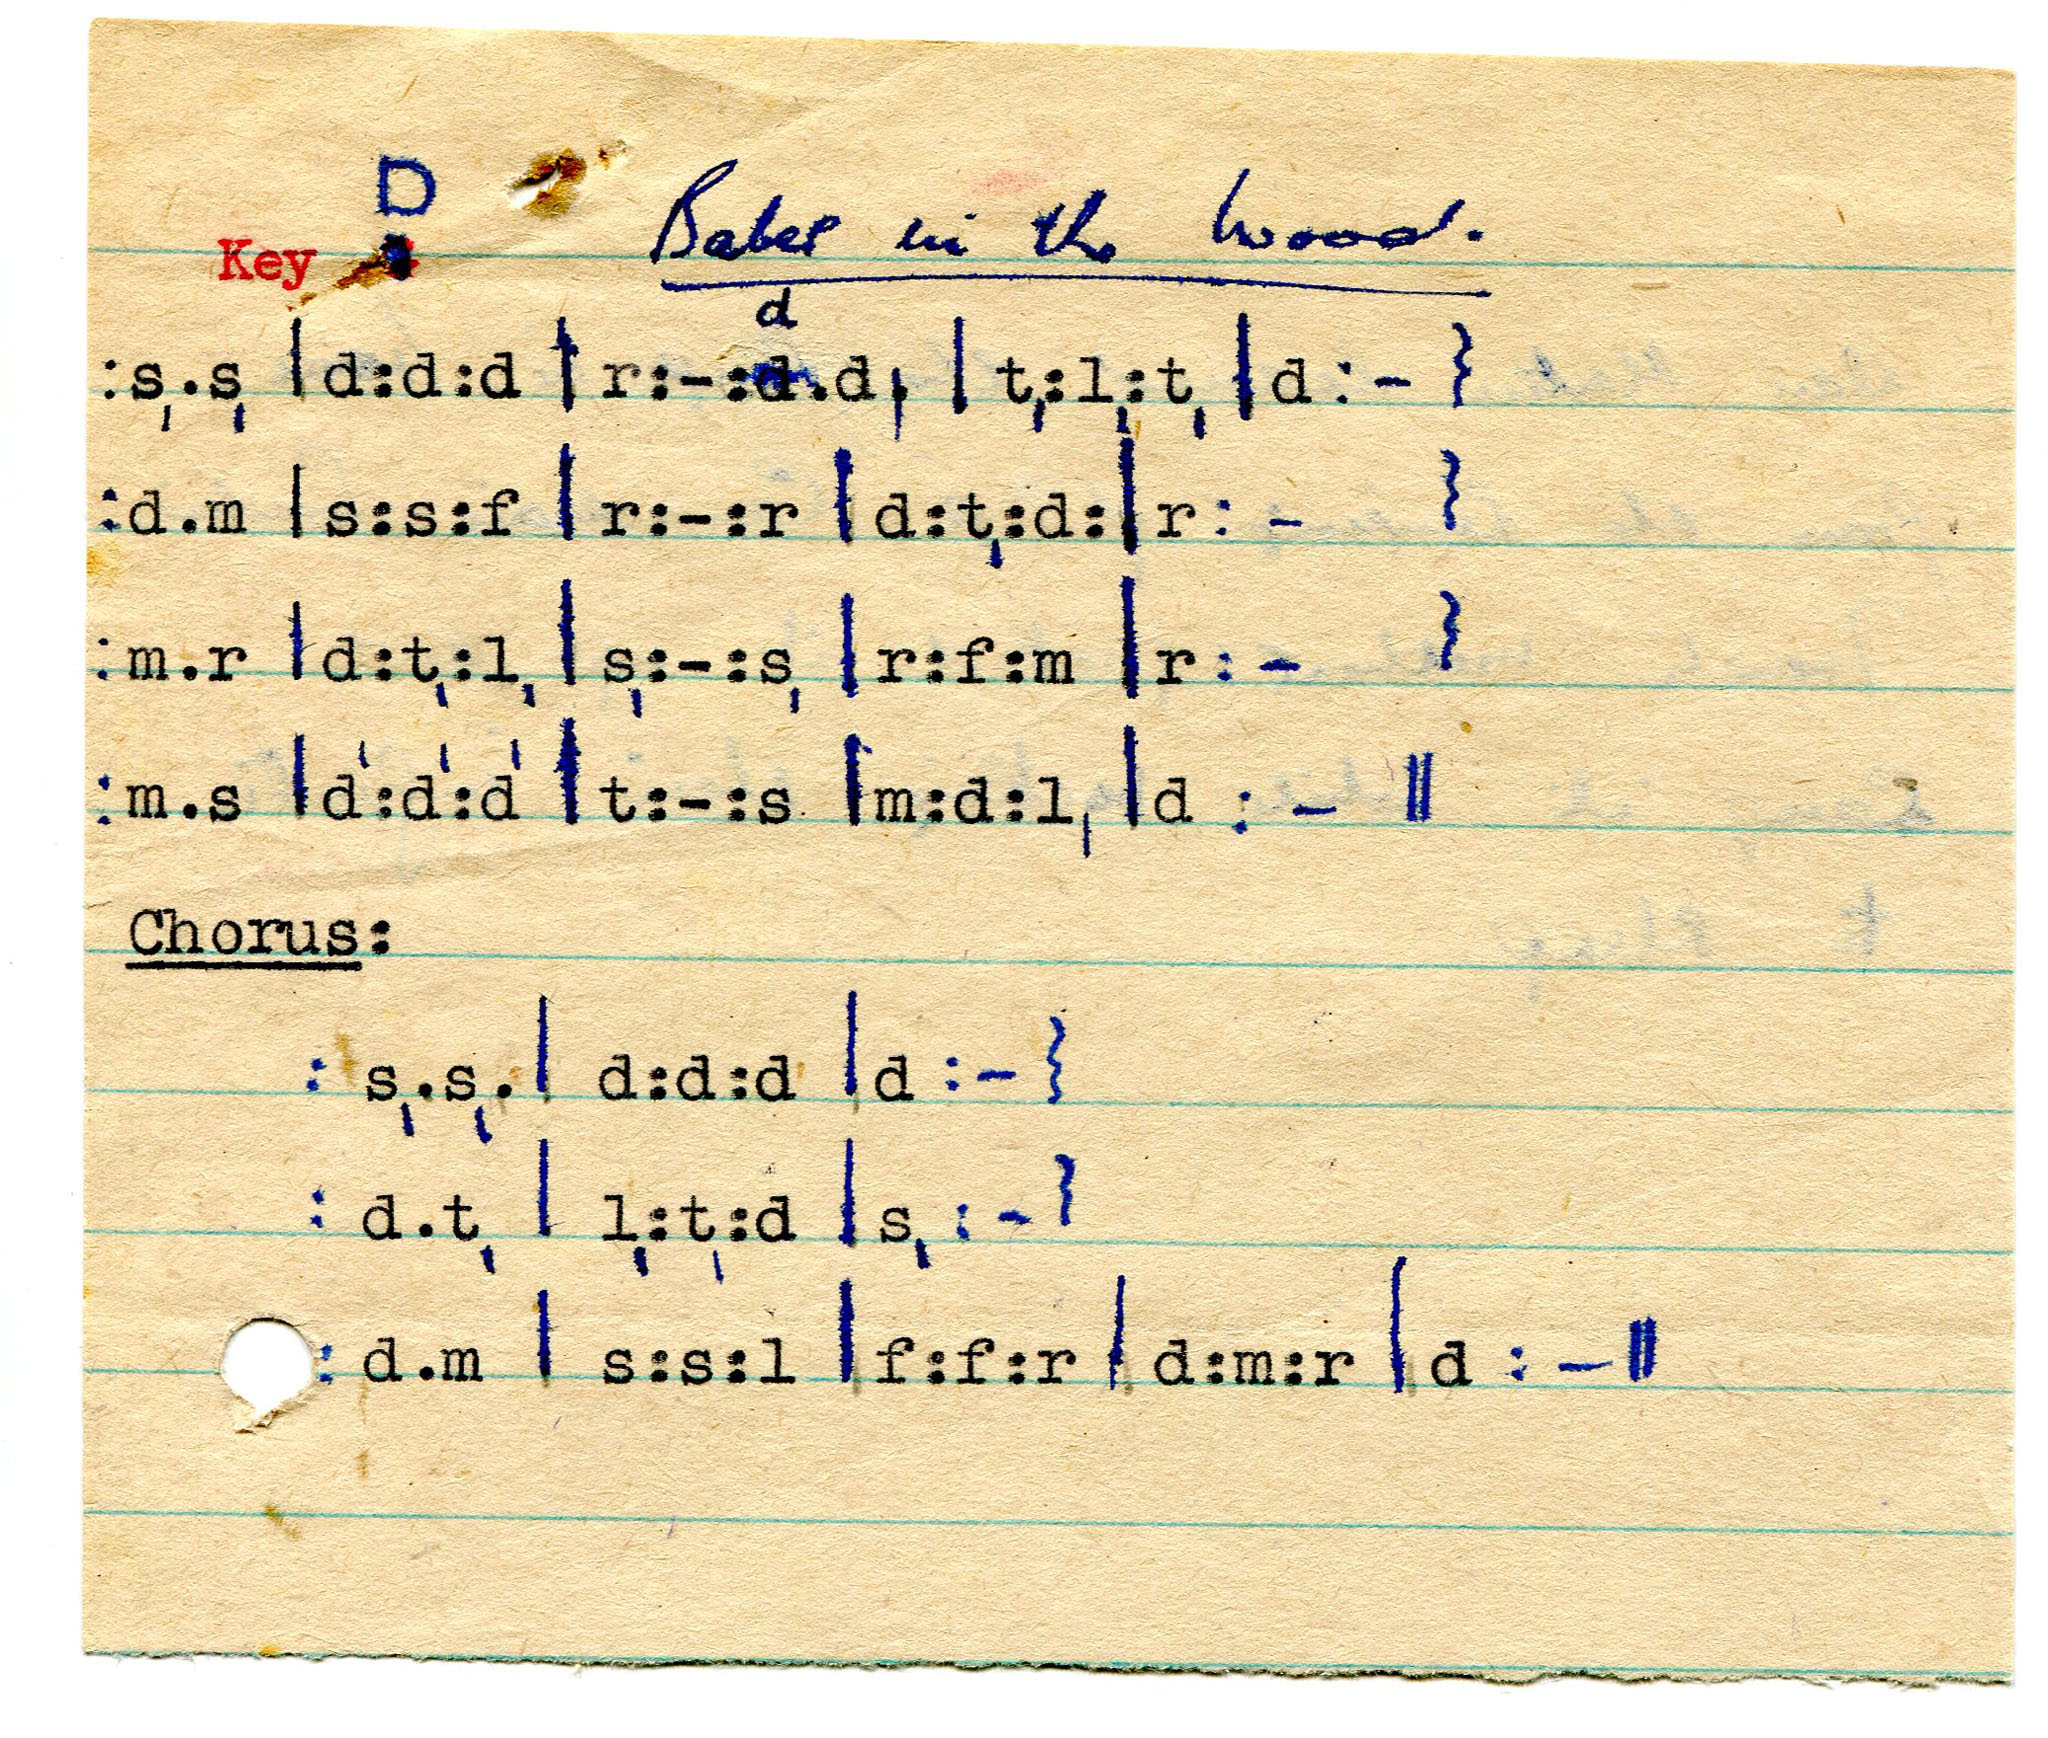 D
Key Babes in the Wood.
d
:s,.s, | d:d:d | r:-:d.d, | t,:l,:t, | d:- }
:d.m | s:s:f | r:-:r | d:t,:d: | r:- }
:m.r | d:t,:l, | s,:-:s, | r:f:m | r:- }
:m.s | d':d':d' | t:-:s | m:d:l, | d:- ||
Chorus:
: s,.s,. | d:d:d | d:- }
: d.t, | l,:t,:d | s,:- }
: d.m | s:s:l | f:f:r | d:m:r | d:- ||